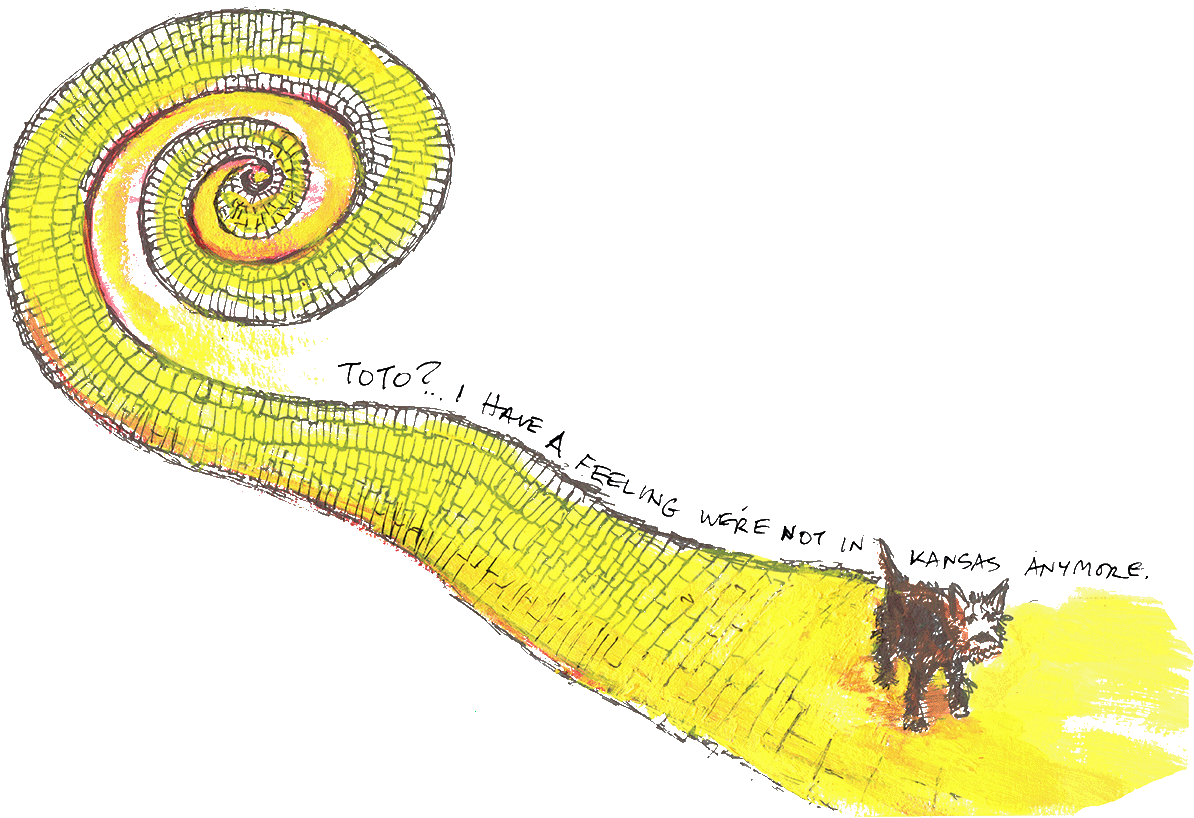 TOTO?... I HAVE A FEELING WE'RE NOT IN KANSAS ANYMORE.